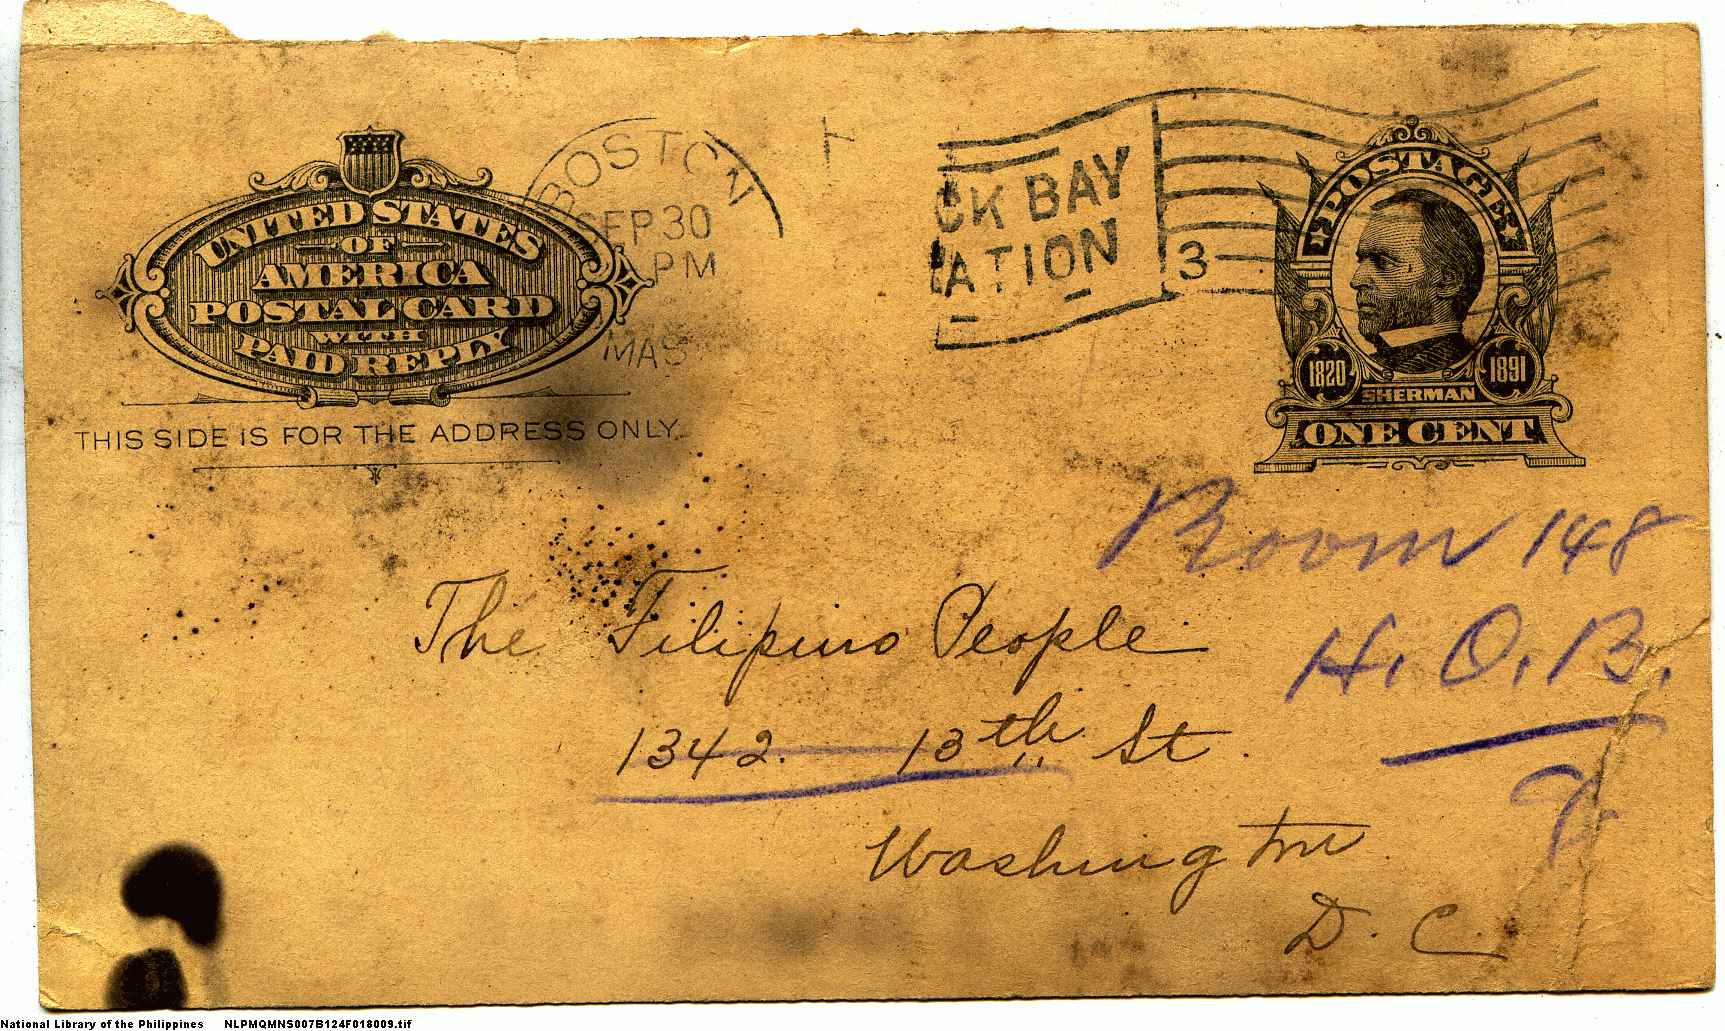 UNITED STATES
OF
AMERICA
POSTAL CARD
WITH
PAID REPLY
THIS SIDE IS FOR THE ADDRESS ONLY.
BOSTON
SEP 30
PM
MAS
CK BAY
ATION
3
POSTAGE
1820 1891
SHERMAN
ONE CENT
Room 148
H.O.B.
The Filipino People
1342. 13th St.
Washington
D.C.
National Library of the Philippines NLPMQMNS007B124F018009.tif